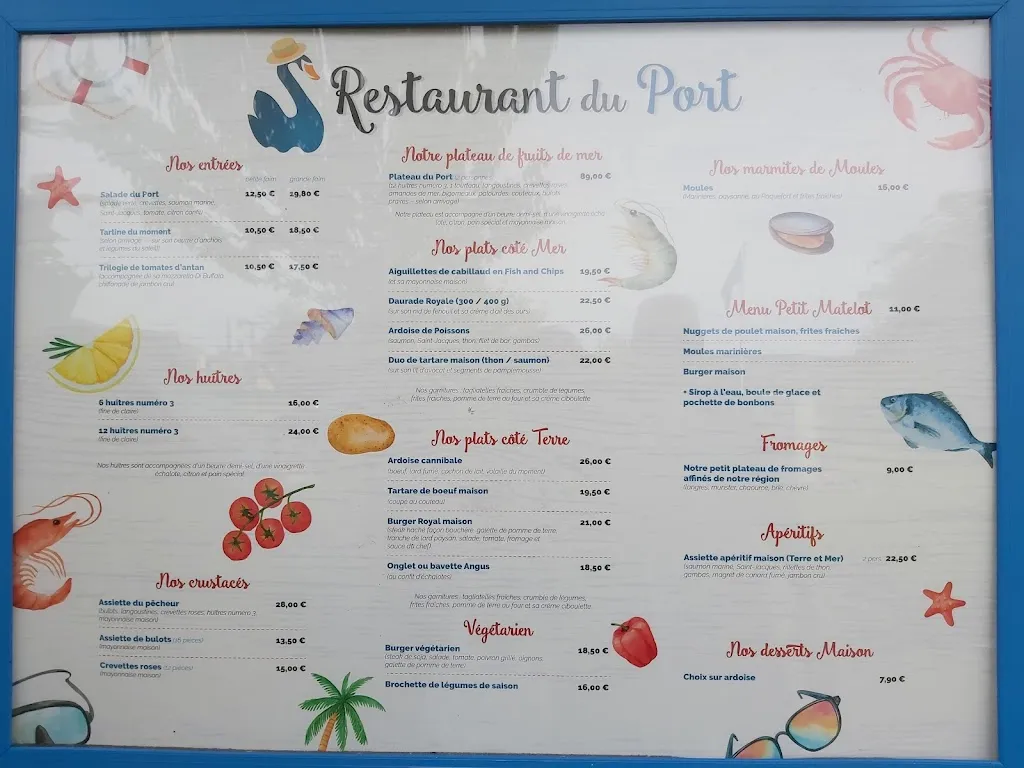 Restaurant du Port
Nos entrées
petite faim grande faim
Salade du Port 12,50 € 19,80 €
(salade verte, crevettes, saumon mariné,
Saint-Jacques, tomate, citron confit)
Tartine du moment 10,50 € 18,50 €
(selon arrivage
et légumes du soleil)
Trilogie de tomates d'antan 10,50 € 17,50 €
(accompagnée de sa mozzarella Di Buffala,
chiffonade de jambon cru)
Nos huîtres
6 huîtres numéro 3 16,00 €
(fine de claire)
12 huîtres numéro 3 24,00 €
(fine de claire)
Nos huîtres sont accompagnées d'un beurre demi-sel, d'une vinaigrette
échalote, citron et pain spécial
Nos crustacés
Assiette du pêcheur 28,00 €
(bulots, langoustines, crevettes roses, huîtres numéro 3,
mayonnaise maison)
Assiette de bulots (16 pièces) 13,50 €
(mayonnaise maison)
Crevettes roses (12 pièces) 15,00 €
(mayonnaise maison)
Notre plateau de fruits de mer
Plateau du Port (2 personnes) 89,00 €
(12 huîtres numéro 3, 1 tourteau, langoustines, crevettes roses,
amandes de mer, bigorneaux, palourdes, couteaux, bulots,
praires - selon arrivage)
Notre plateau est accompagné d'un beurre demi-sel, d'une vinaigrette écha-
lote, citron, pain spécial et mayonnaise maison
Nos plats côté Mer
Aiguillettes de cabillaud en Fish and Chips 19,50 €
(et sa mayonnaise maison)
Daurade Royale (300 / 400 g) 22,50 €
(sur son nid de fenouil et sa crème d'ail des ours)
Ardoise de Poissons 26,00 €
(saumon, Saint-Jacques, thon, filet de bar, gambas)
Duo de tartare maison (thon / saumon) 22,00 €
(sur son lit d'avocat et segments de pamplemousse)
Nos garnitures : tagliatelles fraîches, crumble de légumes,
frites fraîches, pomme de terre au four et sa crème ciboulette
Nos plats côté Terre
Ardoise cannibale 26,00 €
(boeuf, lard fumé, cochon de lait, volaille du moment)
Tartare de boeuf maison 19,50 €
(coupé au couteau)
Burger Royal maison 21,00 €
(steak haché façon bouchère, galette de pomme de terre,
tranche de lard paysan, salade, tomate, fromage et
sauce du chef)
Onglet ou bavette Angus 18,50 €
(au confit d'échalotes)
Nos garnitures : tagliatelles fraîches, crumble de légumes,
frites fraîches, pomme de terre au four et sa crème ciboulette
Végétarien
Burger végétarien 18,50 €
(steak de soja, salade, tomate, poivron grillé, oignons,
galette de pomme de terre)
Brochette de légumes de saison 16,00 €
Nos marmites de Moules
Moules 15,00 €
(Marinières, paysanne, au Roquefort et frites fraîches)
Menu Petit Matelot 11,00 €
Nuggets de poulet maison, frites fraîches
Moules marinières
Burger maison
+ Sirop à l'eau, boule de glace et
pochette de bonbons
Fromages
Notre petit plateau de fromages 9,00 €
affinés de notre région
(langres, munster, chaource, brie, chèvre)
Apéritifs
Assiette apéritif maison (Terre et Mer) 2 pers. 22,50 €
(saumon mariné, Saint-Jacques, rillettes de thon,
gambas, magret de canard fumé, jambon cru)
Nos desserts Maison
Choix sur ardoise 7,90 €